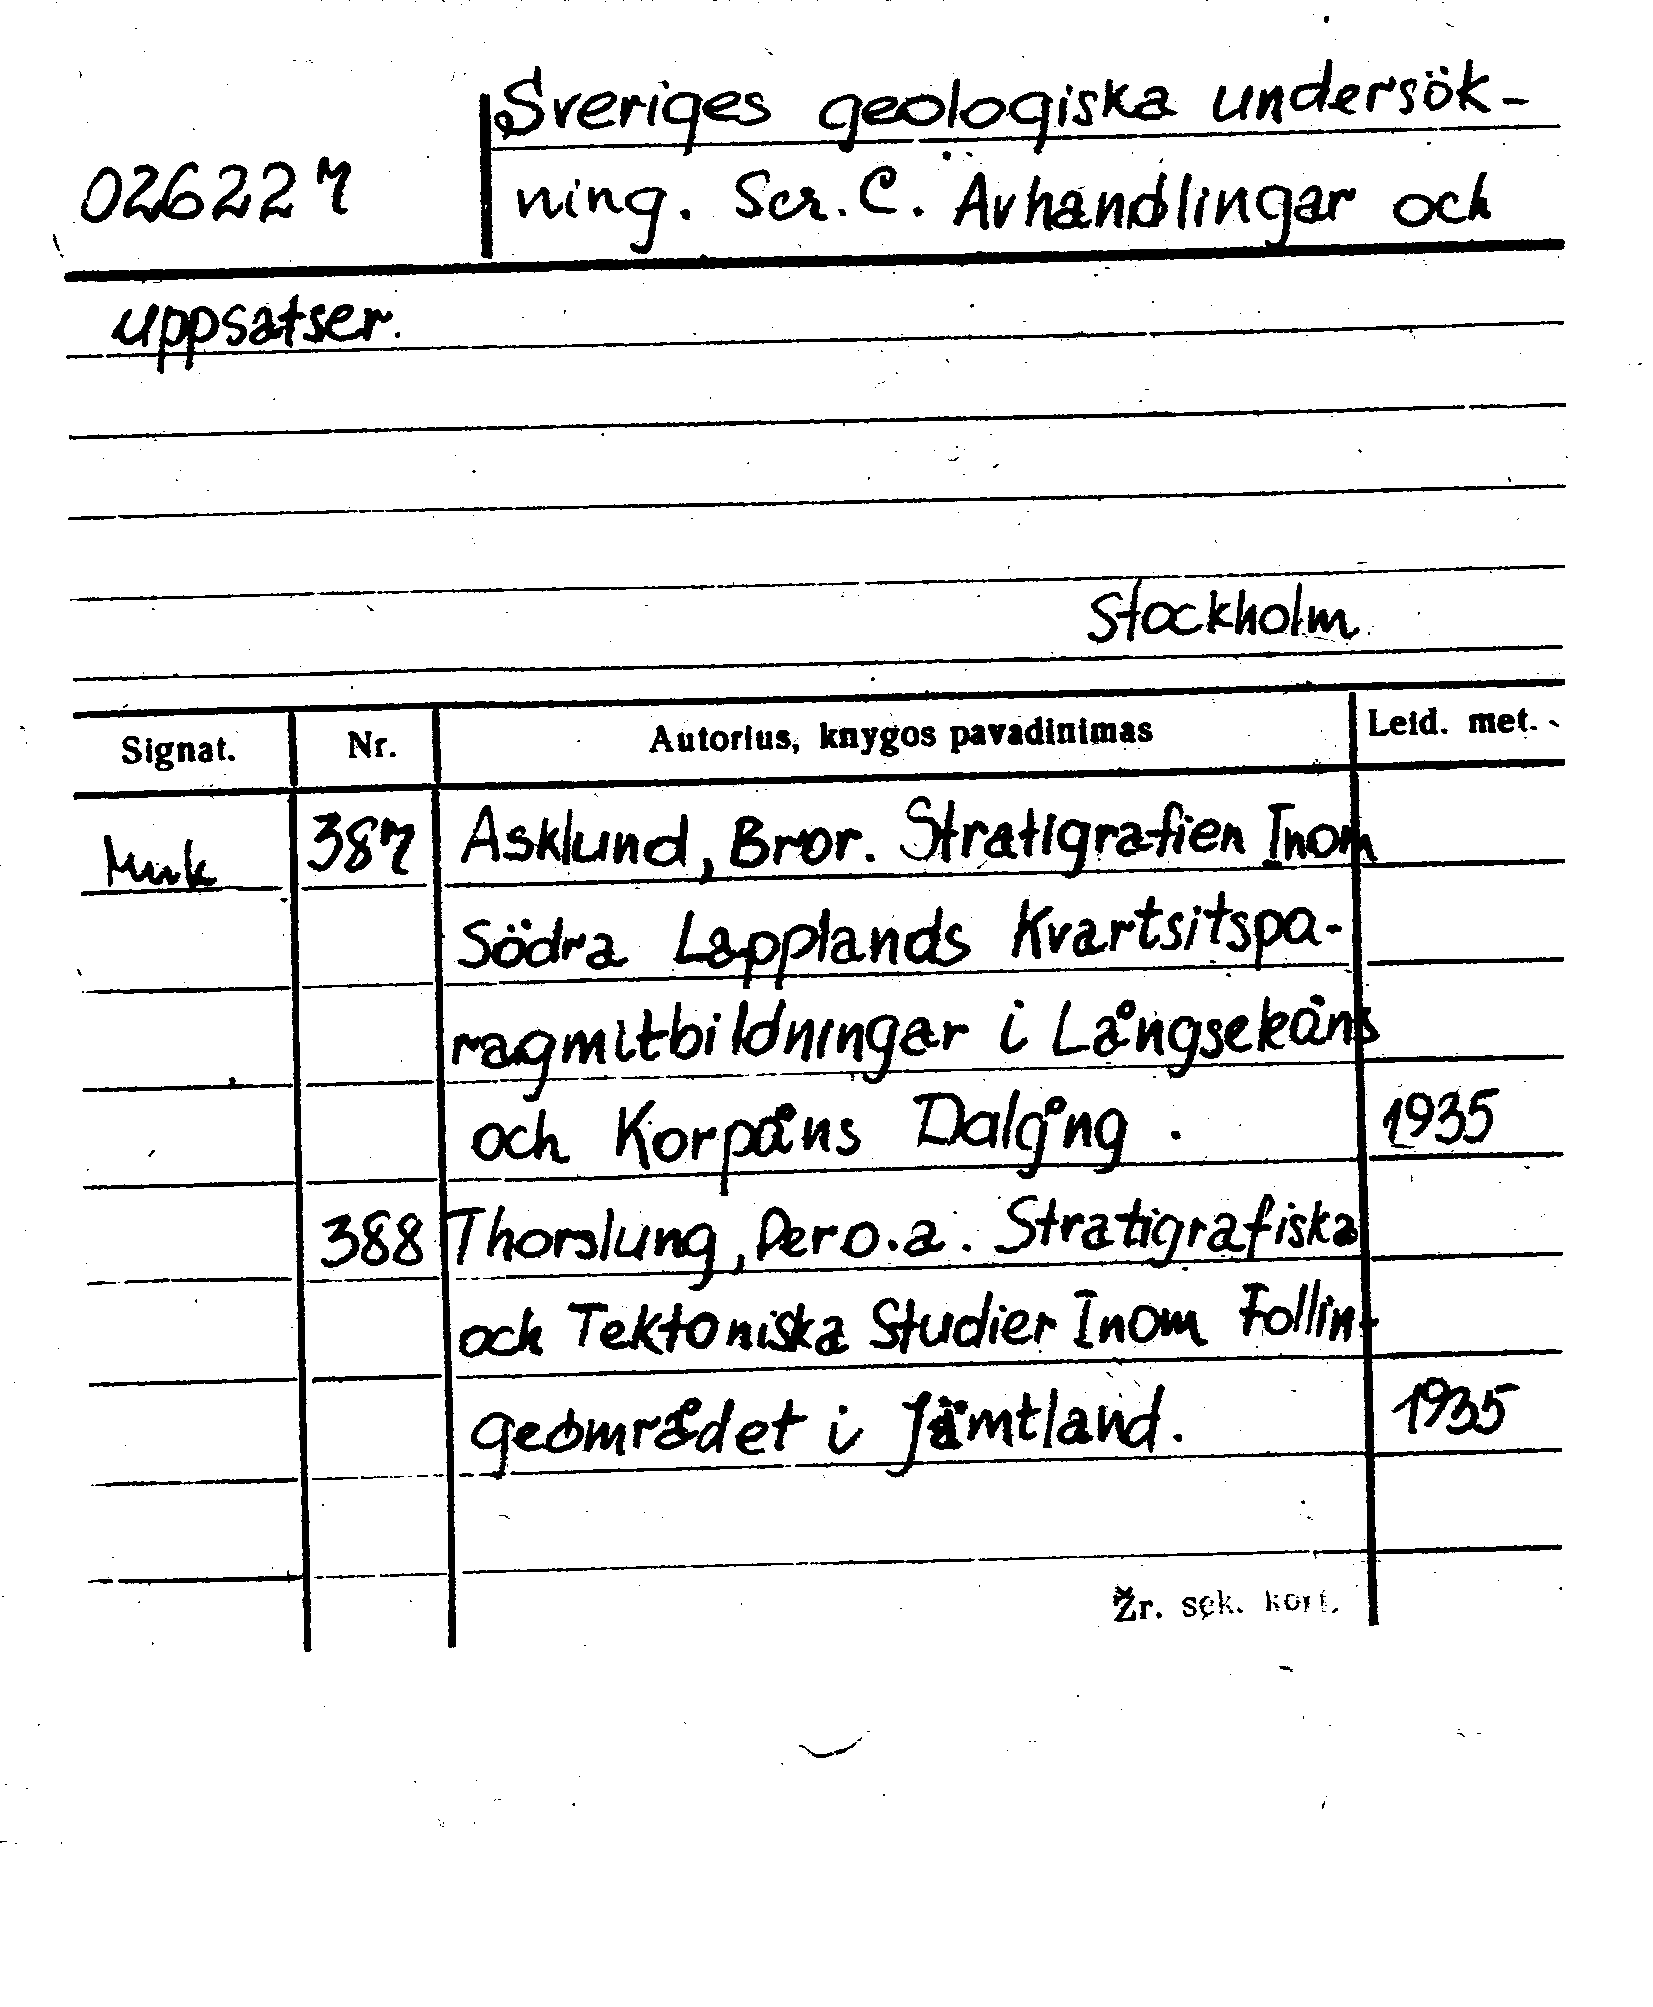 Sveriges geologiska undersök-
026227
ning. Ser. C. Avhandlingar och
uppsatser.
Stockholm
Signat. Nr. Autorius, knygos pavadinimas Leid. met.
387 Asklund, Bror. Stratigrafien Inom
Södra Lapplands Kvartsitspa-
ragmitbildningar i Långsekäns
och Korpåns Dalgång. 1935
388 Thorslung, Per o. a. Stratigrafiska
och Tektoniska Studier Inom Follin-
geområdet i Jämtland. 1935
Žr. sek. kort.